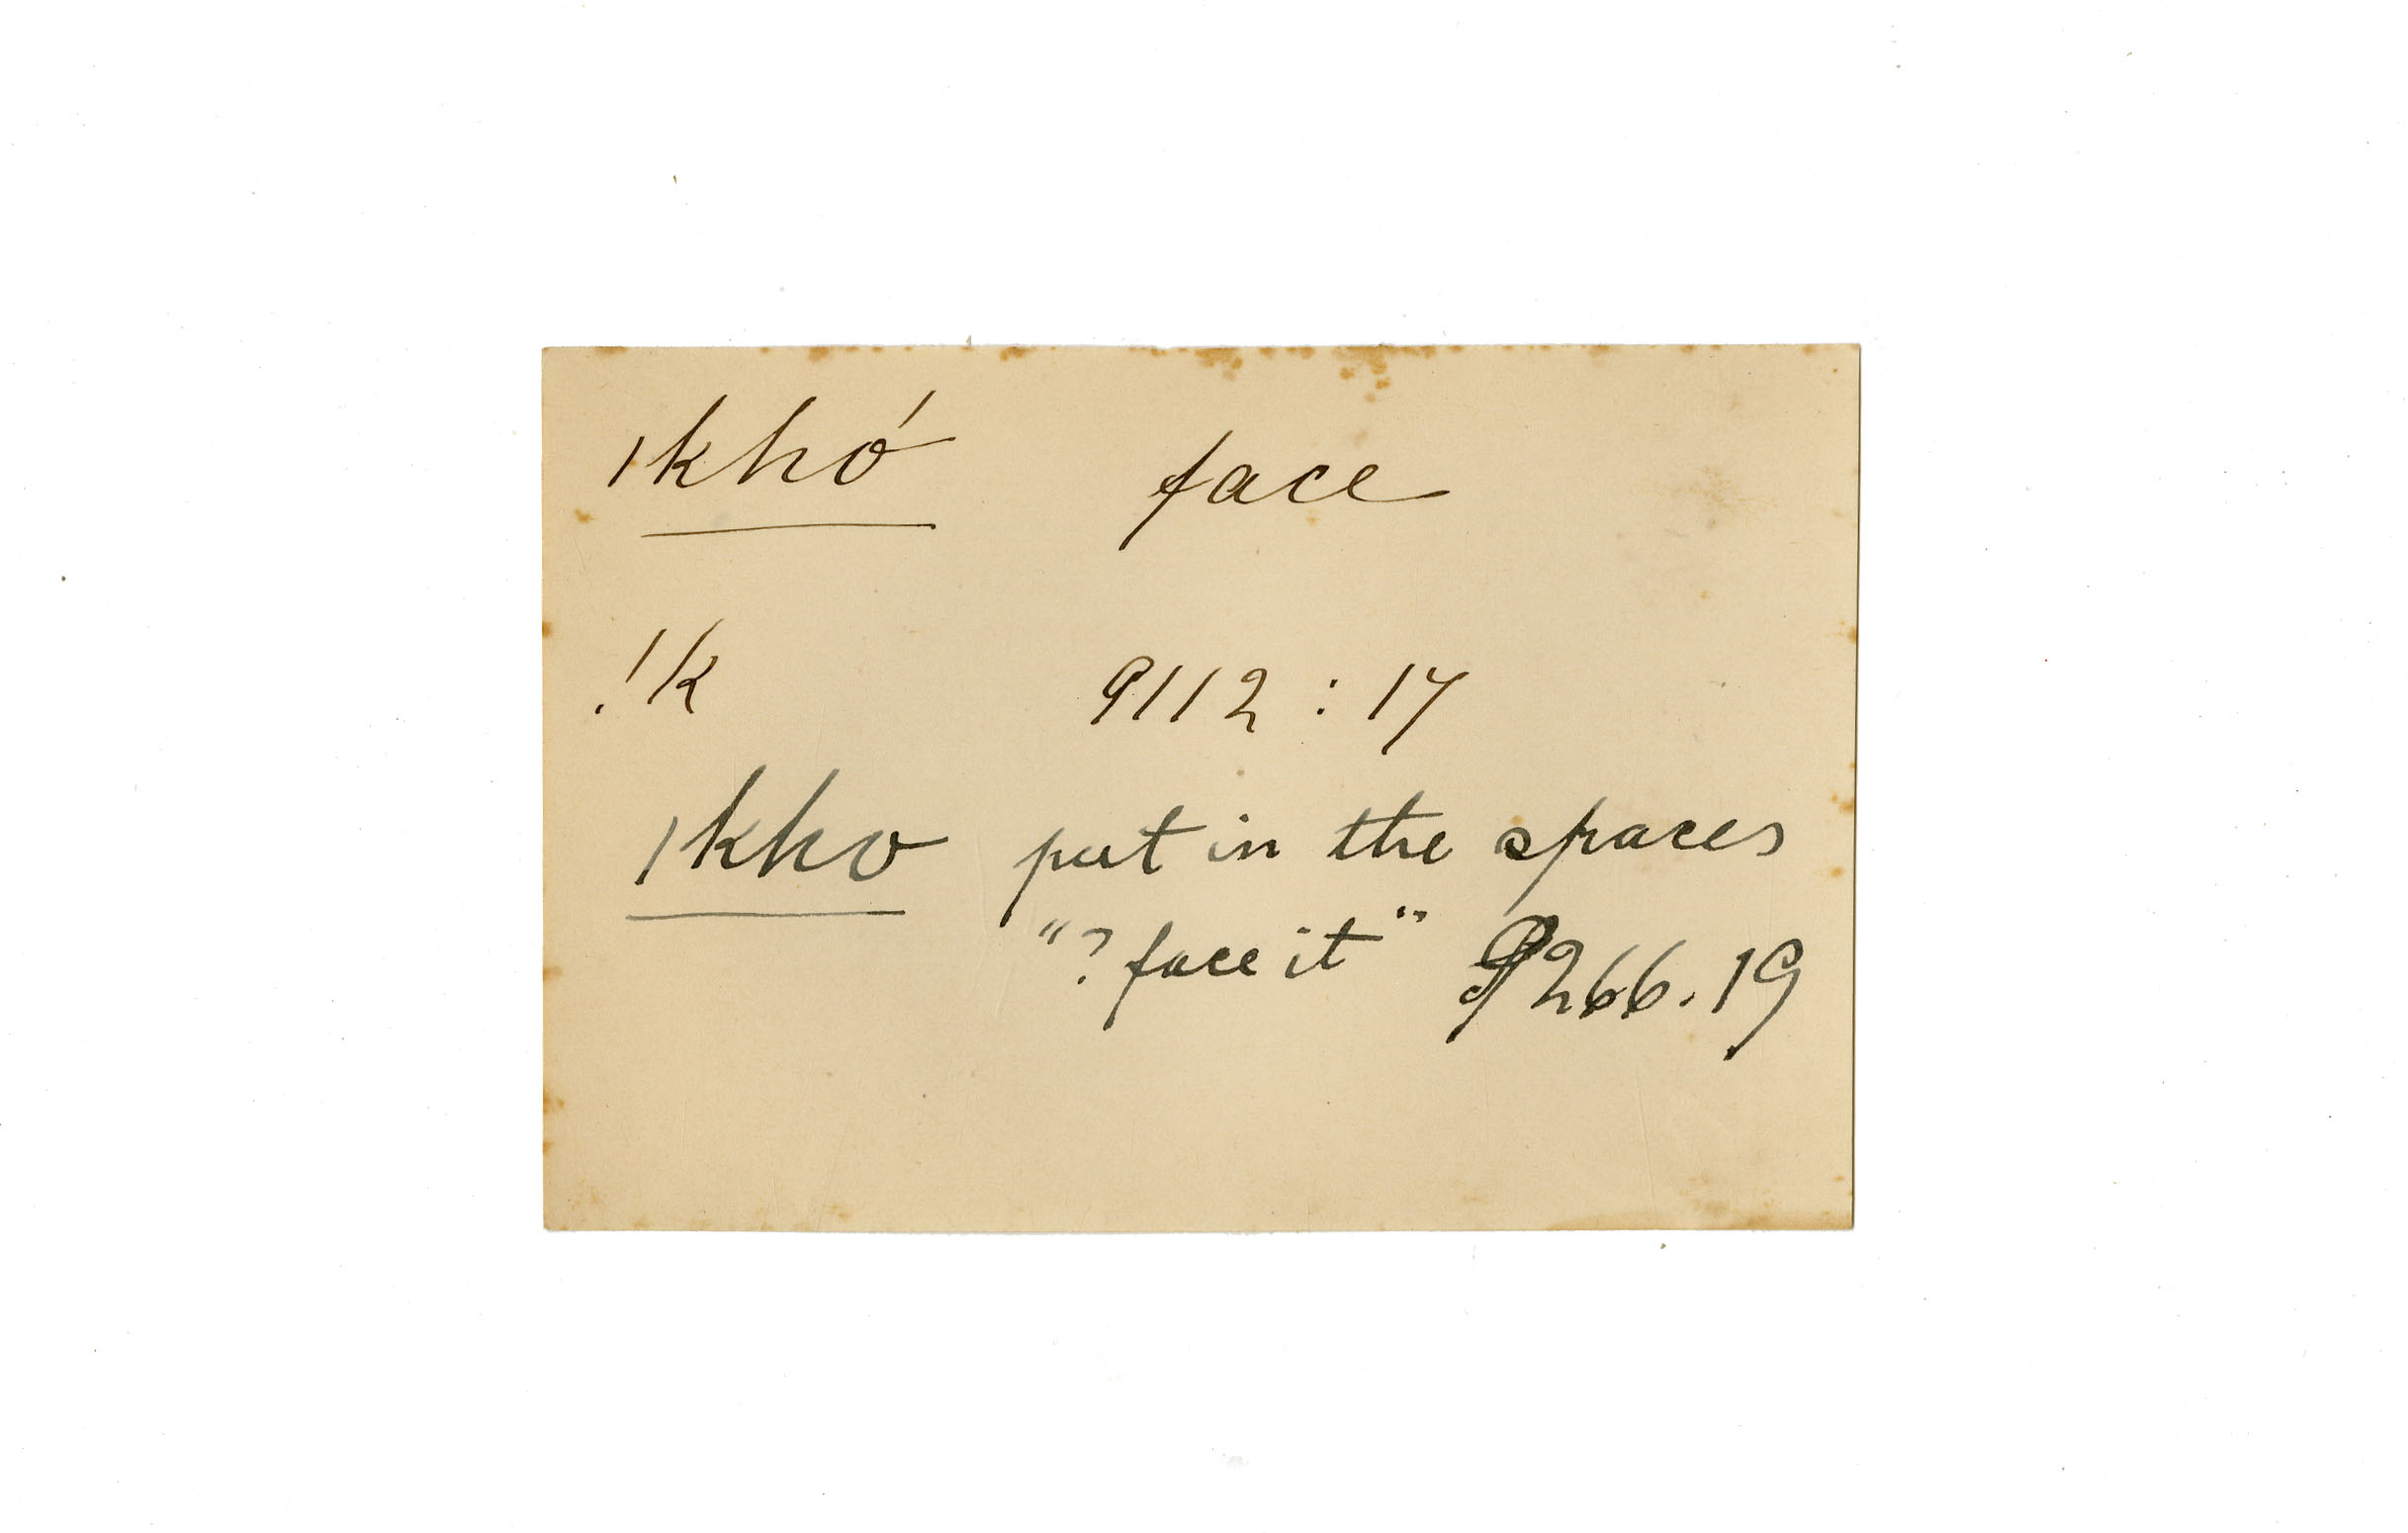 ǀkhó face
!k 9112 : 17
ǀkho put in the spaces
"? face it" P266.19